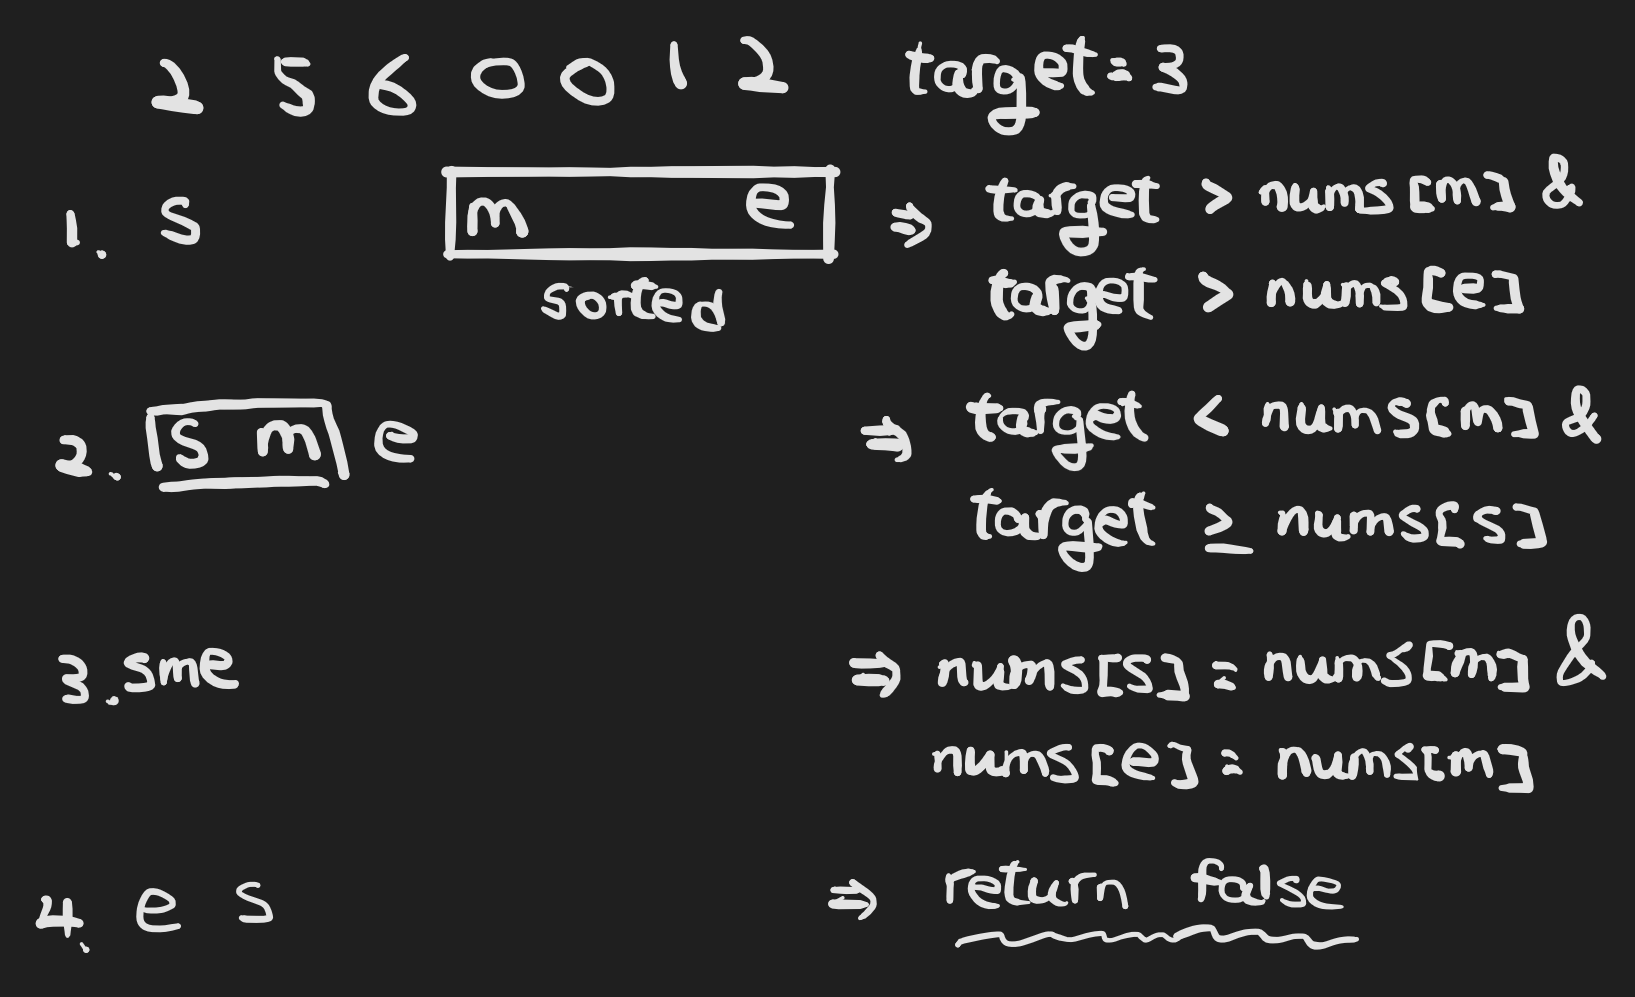 2 5 6 0 0 1 2 target = 3
1. s m e ⇒ target > nums[m] &
sorted target > nums[e]
2. s m e ⇒ target < nums[m] &
target ≥ nums[s]
3. sme ⇒ nums[s] = nums[m] &
nums[e] = nums[m]
4. e s ⇒ return false